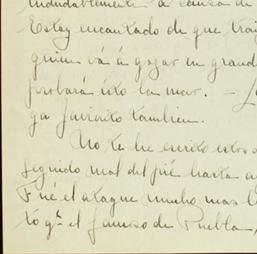 indudablemente á causa de
Estoy encantado de que trai
quien vá á gozar en grand
probará ésto la mar. —
ga favorito tambien.
No te he escrito estos
seguido mal del pié hasta a
Fué el ataque mucho mas l
to q.e el famoso de Puebla,